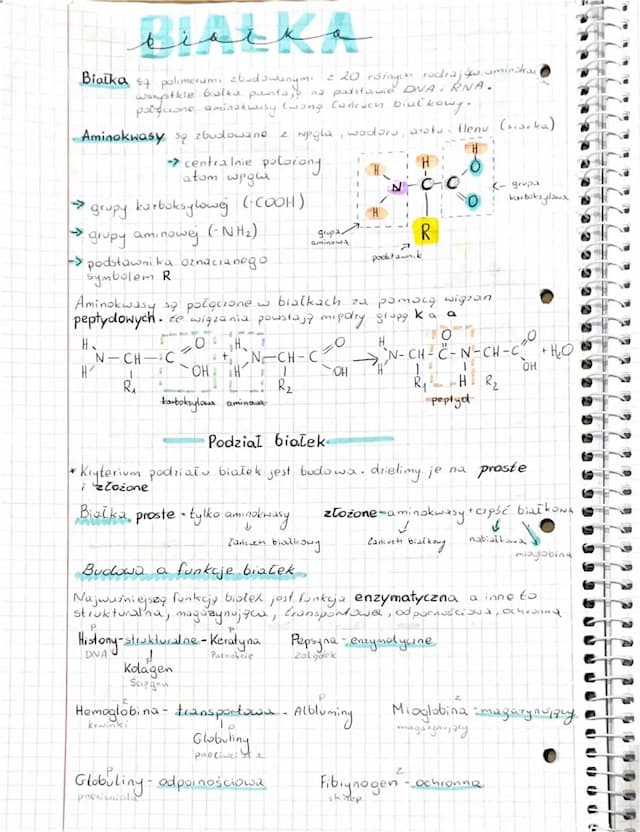 BIAŁKA
białka
Białka są polimerami zbudowanymi z 20 różnych rodzajów aminokw
wszystkie białka powstają na podstawie DNA i RNA.
połączone aminokwasy tworzą łańcuch białkowy.
Aminokwasy są zbudowane z węgla, wodoru, azotu i tlenu (siarka)
→ centralnie położony
atom węgla
→ grupy karboksylowej (-COOH)
→ grupy aminowej (-NH₂)
→ podstawnika oznaczanego
symbolem R
H H H
N C C O
H R O
grupa aminowa
podstawnik
grupa karboksylowa
Aminokwasy są połączone w białkach za pomocą wiązań
peptydowych. te wiązania powstają między grupą k a a
H N - CH - C O OH + H N - CH - C O OH → H N - CH - C - N - CH - C O OH + H₂O
H R₁ H R₂ H R₁ O H R₂
karboksylowa aminowa peptyd
Podział białek
* Kryterium podziału białek jest budowa. dzielimy je na proste
i złożone
Białka proste - tylko aminokwasy
łańcuch białkowy
złożone - aminokwasy + część białkowa
łańcuch białkowy niebiałkowa
mioglobina
Budowa a funkcje białek
Najważniejszą funkcją białek jest funkcja enzymatyczna a inne to
strukturalna, magazynująca, transportowa, odpornościowa, ochronna
p p p
Histony - strukturalne - Keratyna Pepsyna - enzymatyczne
DNA Paznokcie żołądek
Kolagen
Ścięgna
z p z
Hemoglobina - transportowa - Albluminy Mioglobina - magazynujący
krwinki magazynujący
p
Globuliny
p z
Globuliny - odpornościowa Fibrynogen - ochronna
przeciwciała skrzep